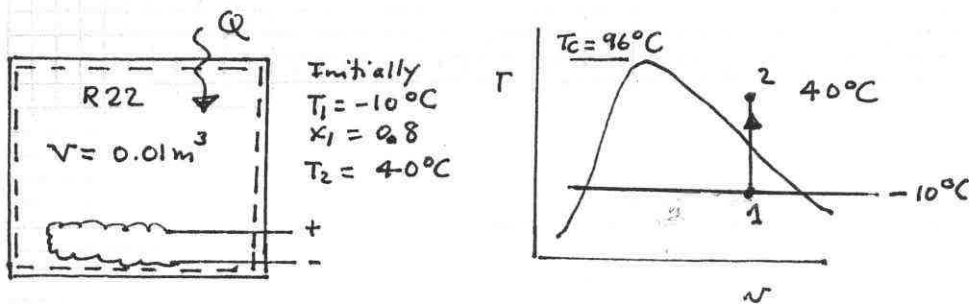 Q
R22
V = 0.01m³
Initially
T₁ = -10°C
x₁ = 0.8
T₂ = 40°C
+
-
Tc = 96°C
T
2
40°C
1
-10°C
v